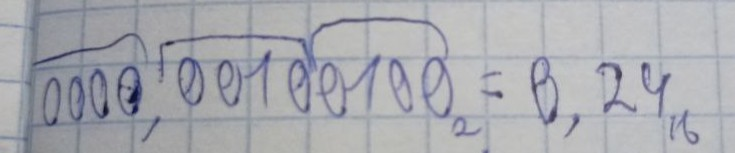 0000,00100100₂ = 0,24₁₆